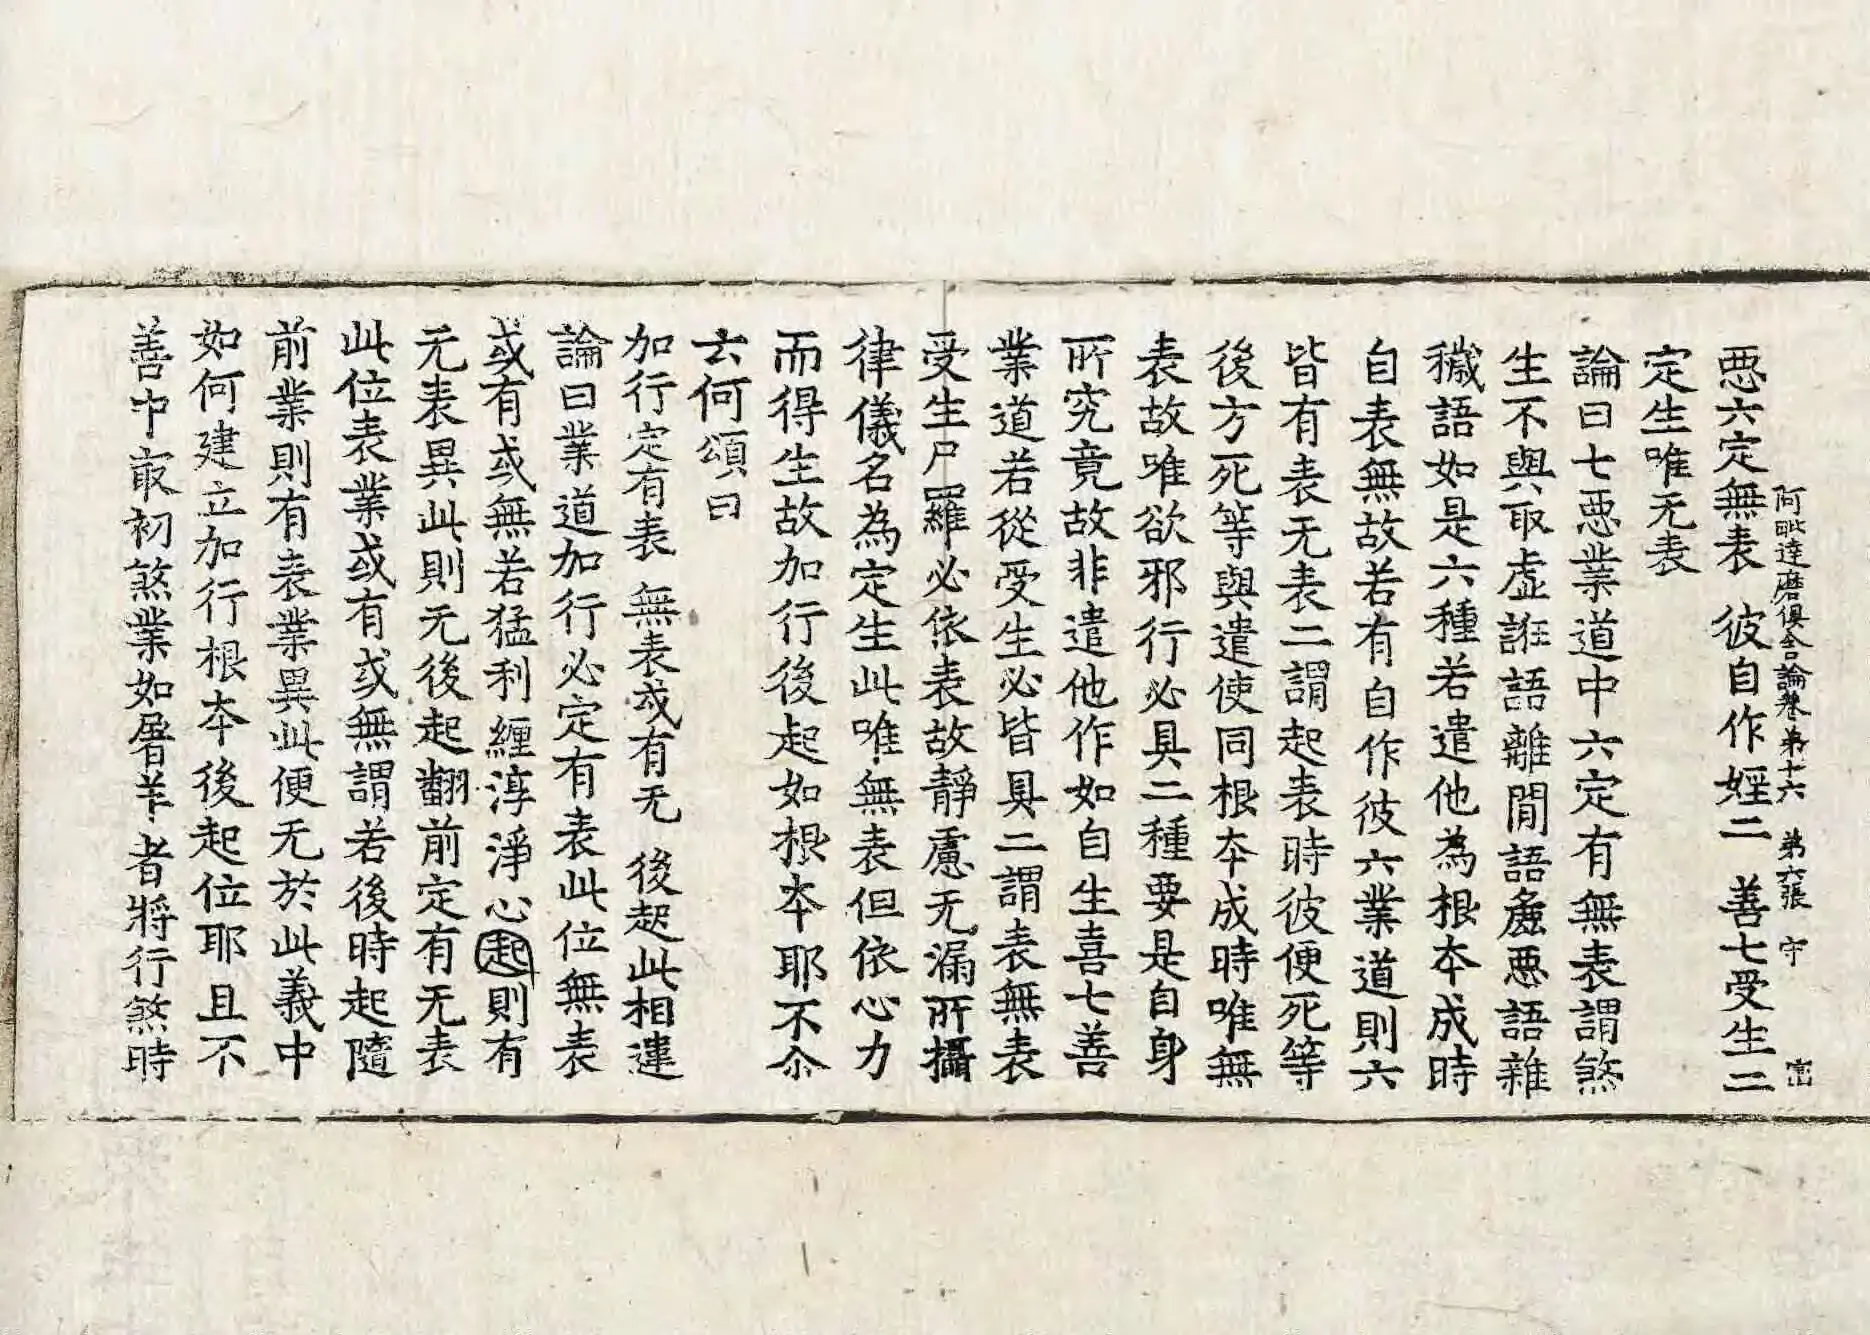 阿毗達磨俱舍論卷第十六　第六張　守
惡六定無表　彼自作婬二　善七受生二
定生唯无表
論曰七惡業道中六定有無表謂煞
生不與取虛誑語離間語麁惡語雜
穢語如是六種若遣他為根本成時
自表無故若有自作彼六業道則六
皆有表无表二謂起表時彼便死等
後方死等與遣使同根本成時唯無
表故唯欲邪行必具二種要是自身
所究竟故非遣他作如自生喜七善
業道若從受生必皆具二謂表無表
受生尸羅必依表故靜慮无漏所攝
律儀名為定生此唯無表但依心力
而得生故加行後起如根本耶不尒
云何頌曰
加行定有表　無表或有无　後起此相違
論曰業道加行必定有表此位無表
或有或無若猛利纏淳淨心起則有
无表異此則无後起翻前定有无表
此位表業或有或無謂若後時起隨
前業則有表業異此便无於此義中
如何建立加行根本後起位耶且不
善中最初煞業如屠羊者將行煞時